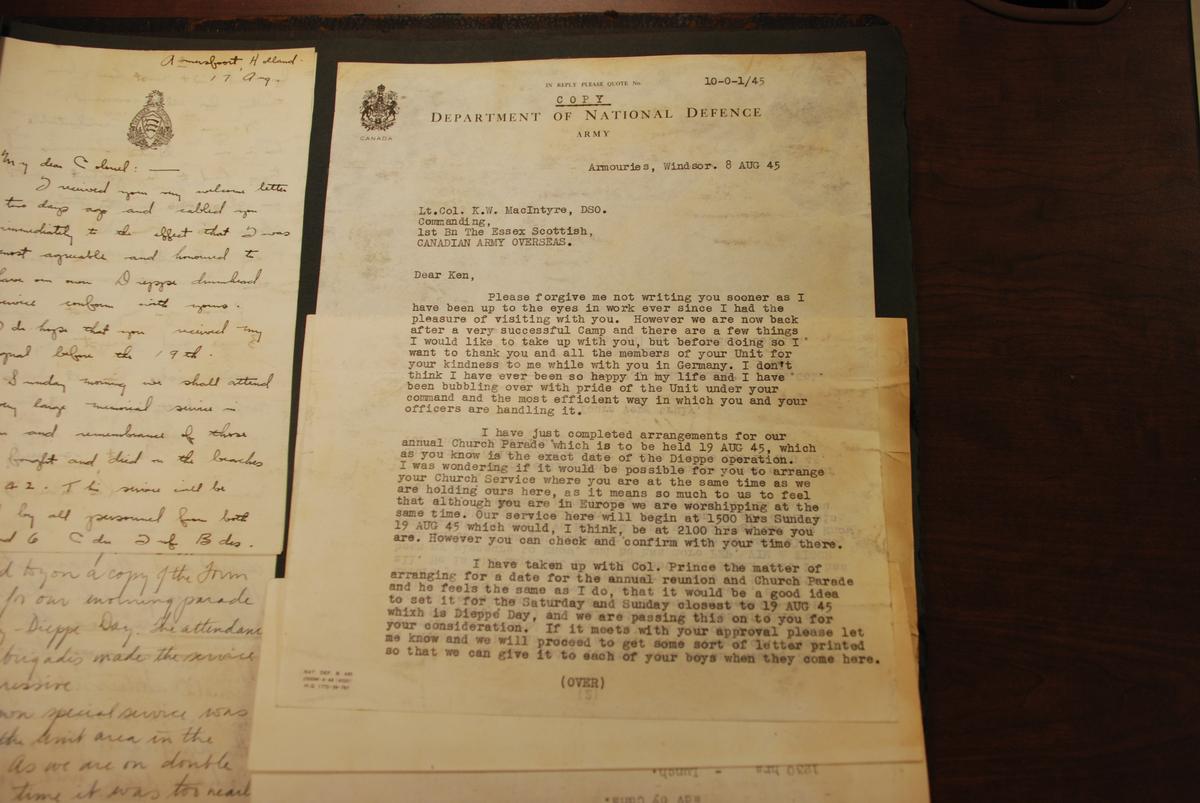 Amersfoort, Holland.
17 Aug.
My dear Colonel: —
I received your very welcome letter
two days ago and cabled you
immediately to the effect that I was
most agreeable and honoured to
have our own Dieppe drumhead
service conform with yours.
I do hope that you received my
signal before the 19th.
Sunday morning we shall attend
very large memorial service in
and remembrance of those
fought and died on the beaches
42. This service will be
by all personnel from both
6 Cdn Inf Bdes.
d to you a copy of the Form
for our morning parade
- Dieppe Day. The attendan
brigades made the service
ressive
own special service was
the unit area in the
As we are on double
time it was too near
IN REPLY PLEASE QUOTE No.
10-0-1/45
COPY
DEPARTMENT OF NATIONAL DEFENCE
CANADA
ARMY
Armouries, Windsor. 8 AUG 45
Lt.Col. K.W. MacIntyre, DSO.
Commanding,
1st Bn The Essex Scottish,
CANADIAN ARMY OVERSEAS.
Dear Ken,
Please forgive me not writing you sooner as I
have been up to the eyes in work ever since I had the
pleasure of visiting with you. However we are now back
after a very successful Camp and there are a few things
I would like to take up with you, but before doing so I
want to thank you and all the members of your Unit for
your kindness to me while with you in Germany. I don't
think I have ever been so happy in my life and I have
been bubbling over with pride of the Unit under your
command and the most efficient way in which you and your
officers are handling it.
I have just completed arrangements for our
annual Church Parade which is to be held 19 AUG 45, which
as you know is the exact date of the Dieppe operation.
I was wondering if it would be possible for you to arrange
your Church Service where you are at the same time as we
are holding ours here, as it means so much to us to feel
that although you are in Europe we are worshipping at the
same time. Our service here will begin at 1500 hrs Sunday
19 AUG 45 which would, I think, be at 2100 hrs where you
are. However you can check and confirm with your time there.
I have taken up with Col. Prince the matter of
arranging for a date for the annual reunion and Church Parade
and he feels the same as I do, that it would be a good idea
to set it for the Saturday and Sunday closest to 19 AUG 45
whixh is Dieppe Day, and we are passing this on to you for
your consideration. If it meets with your approval please let
me know and we will proceed to get some sort of letter printed
so that we can give it to each of your boys when they come here.
(OVER)
1230 hrs - Lunch.